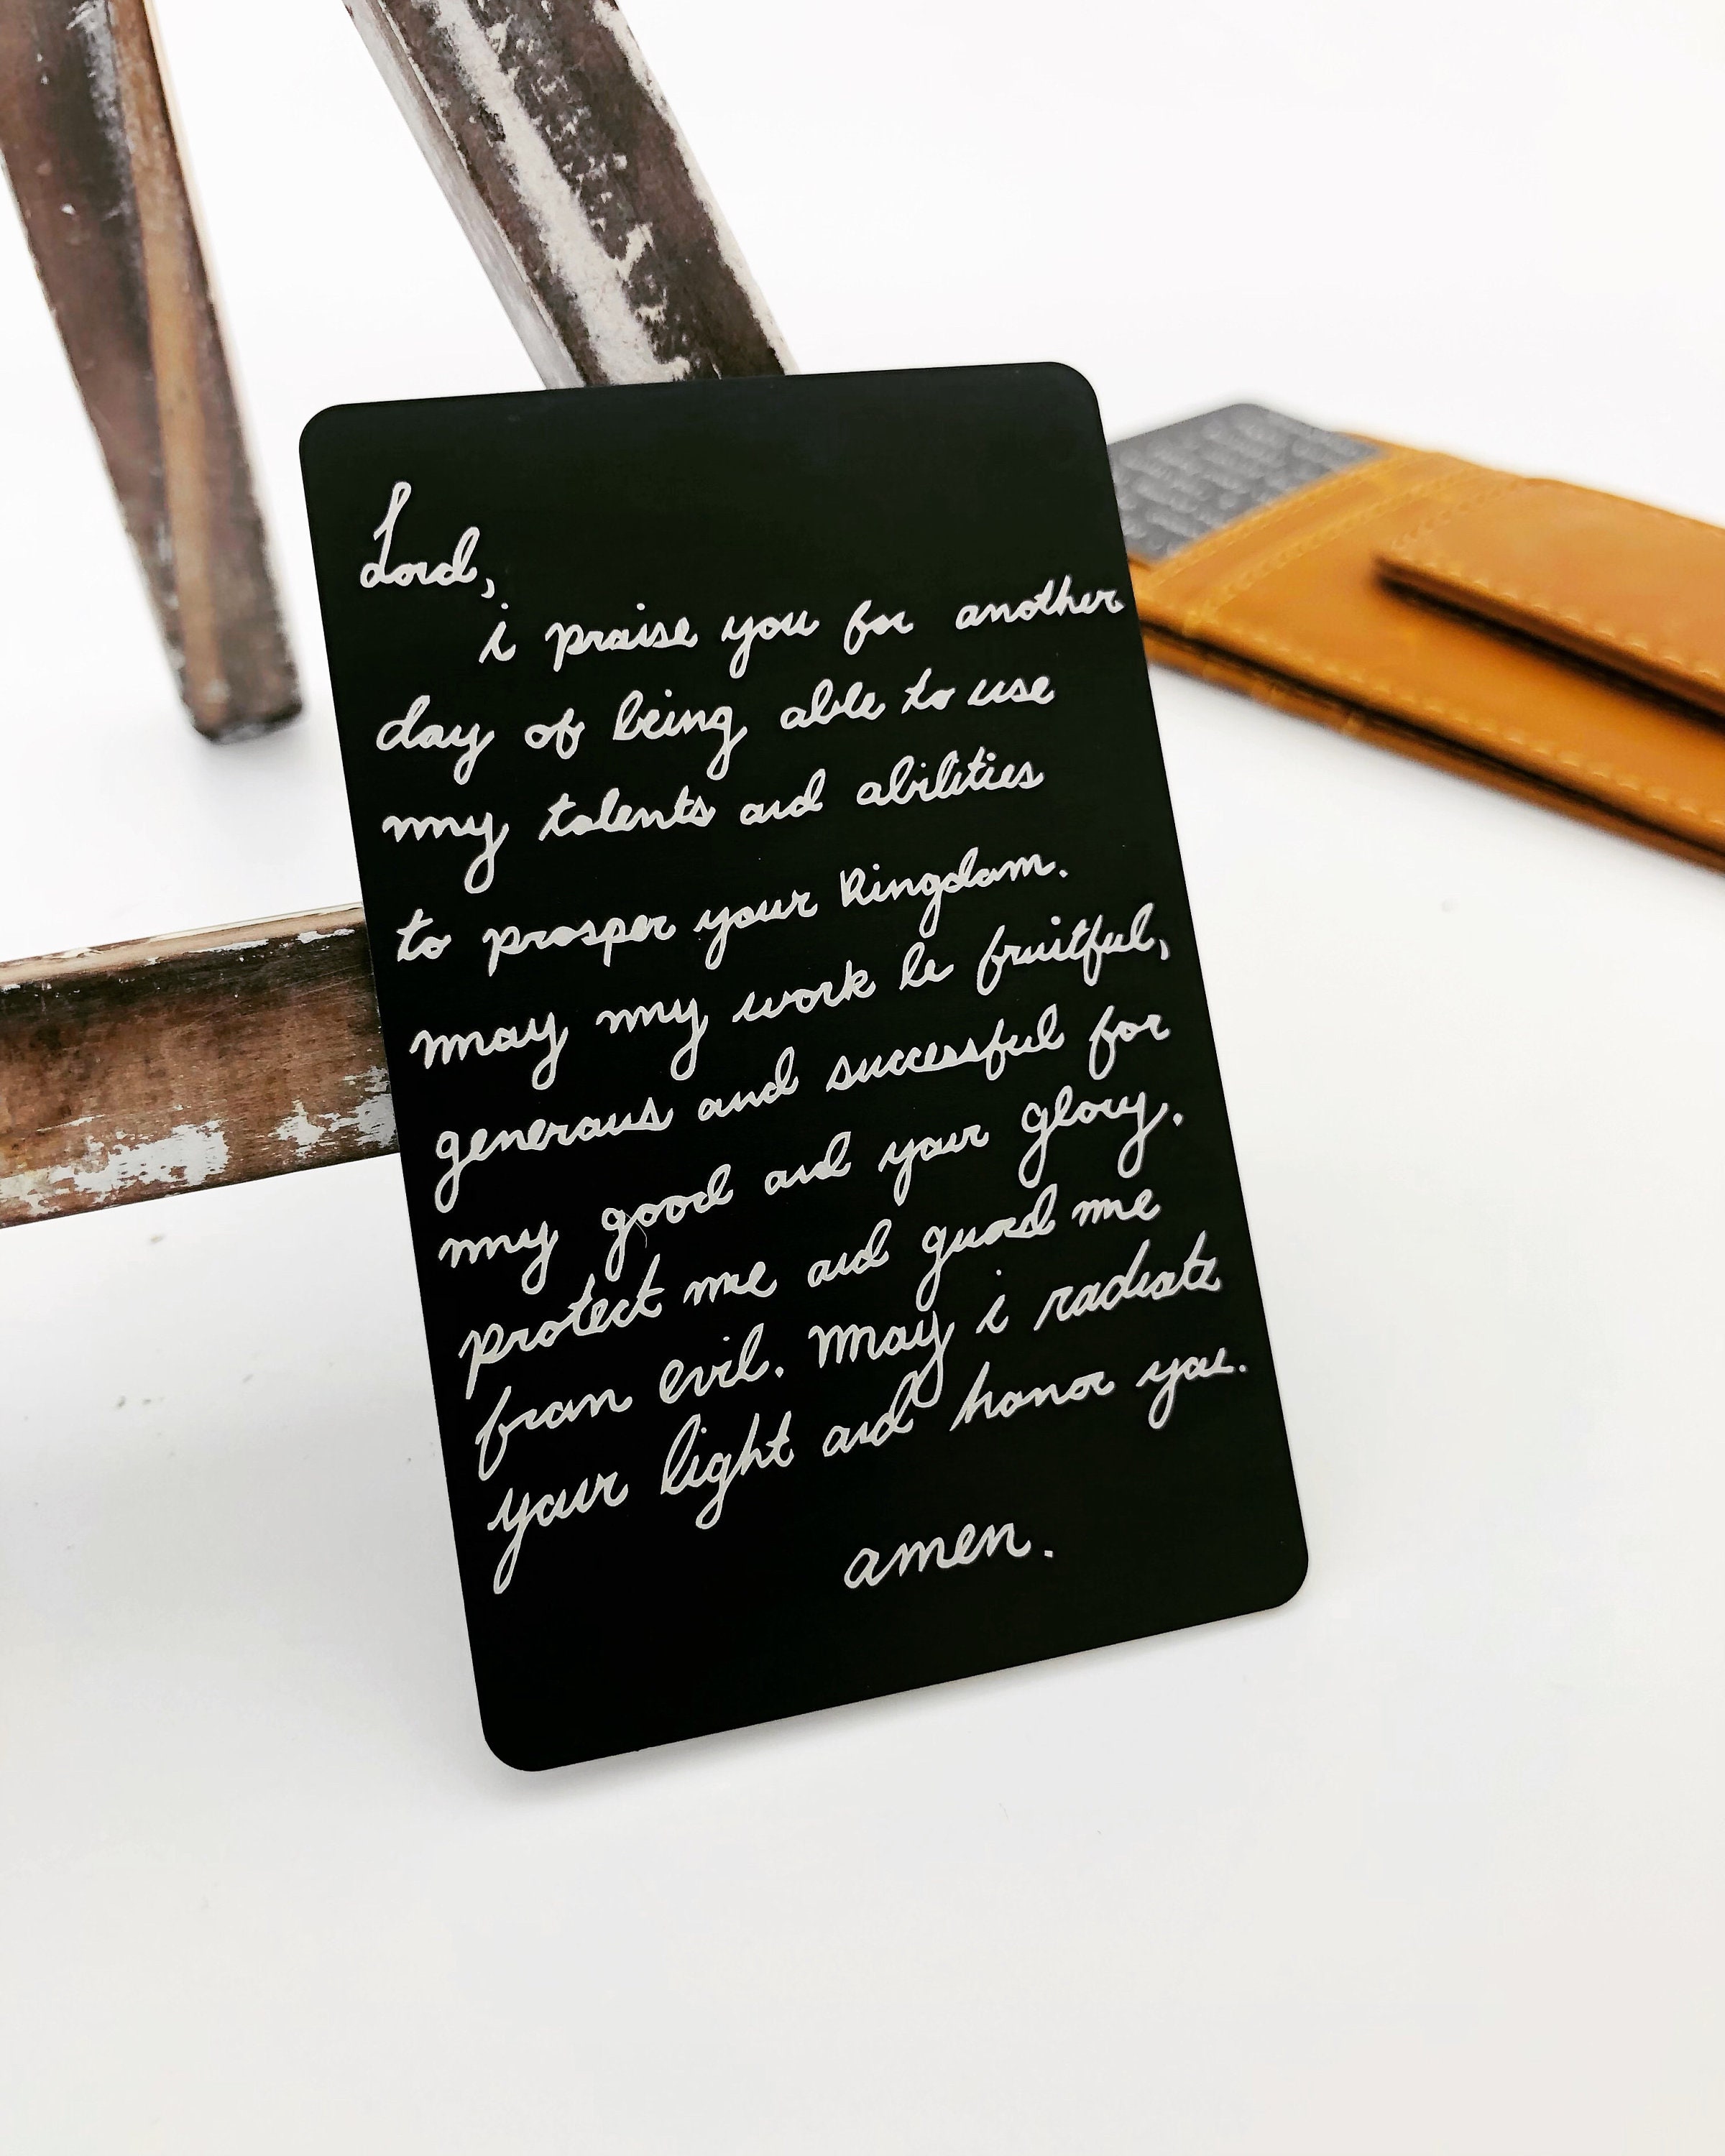 Lord,
i praise you for another
day of being able to use
my talents and abilities
to prosper your Kingdom.
may my work be fruitful,
generous and successful for
my good and your glory.
protect me and guard me
from evil. May i radiate
your light and honor you.
amen.